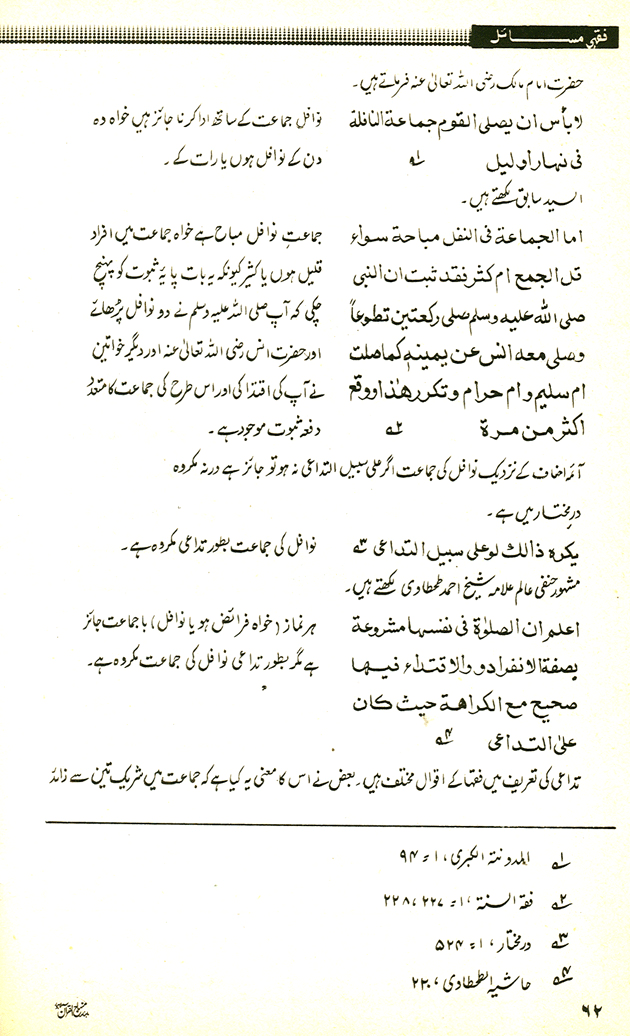 فقہی مسائل
حضرت امام مالک رضی اللہ تعالیٰ عنہ فرماتے ہیں۔
لا بأس ان یصلی القوم جماعة النافلة
فی نهار اولیل ۱؎
نوافل جماعت کے ساتھ ادا کرنا جائز ہیں خواہ وہ
دن کے نوافل ہوں یا رات کے۔
السید سابق لکھتے ہیں۔
اما الجماعة فی النفل مباحة سواء
قل الجمع ام کثر فقد ثبت ان النبی
صلی الله علیه وسلم صلی رکعتین تطوعاً
وصلی معه انس عن یمینه کما صلت
ام سلیم وام حرام وتکرر هٰذا ووقع
اکثر من مرة ۲؎
جماعتِ نوافل مباح ہے خواہ جماعت میں افراد
قلیل ہوں یا کثیر کیونکہ یہ بات پایۂ ثبوت کو پہنچ
چکی کہ آپ صلی اللہ علیہ وسلم نے دو نوافل پڑھائے
اور حضرت انس رضی اللہ تعالیٰ عنہ اور دیگر خواتین
نے آپ کی اقتدا کی اور اس طرح کی جماعت کا متعدد
دفعہ ثبوت موجود ہے۔
آئمہ احناف کے نزدیک نوافل کی جماعت اگر علی سبیل التداعی نہ ہو تو جائز ہے ورنہ مکروہ
درمختار میں ہے۔
یکره ذالك لو علی سبیل التداعی ۳؎
نوافل کی جماعت بطور تداعی مکروہ ہے۔
مشہور حنفی عالم علامہ شیخ احمد طحطاوی لکھتے ہیں۔
اعلم ان الصلوٰة فی نفسها مشروعة
بصفة الانفراد والاقتداء فیها
صحیح مع الکراهة حیث کان
علی التداعی ۴؎
ہر نماز (خواہ فرائض ہو یا نوافل) با جماعت جائز
ہے مگر بطور تداعی نوافل کی جماعت مکروہ ہے۔
تداعی کی تعریف میں فقہا کے اقوال مختلف ہیں۔ بعض نے اس کا معنی یہ کیا ہے کہ جماعت میں شریک تین سے زائد
۱؎ المدونتہ الکبریٰ، ۱ = ۹۴
۲؎ فقہ السنۃ، ۱ = ۲۲۷، ۲۲۸
۳؎ درمختار، ۱ = ۵۲۴
۴؎ حاشیہ الطحطاوی، ۲۲۰
۶۲